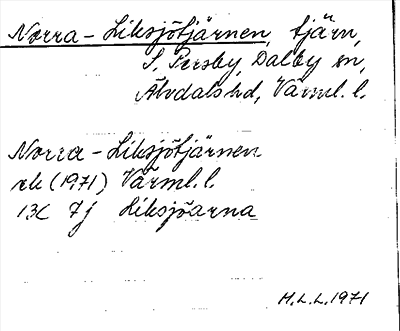 Norra-Liksjötjärnen, tjärn,
S. Persby, Dalby sn,
Älvdals hd, Värml. l.
Norra-Liksjötjärnen
rek (1971) Värml. l.
13C 7j Liksjöarna
H.L.L. 1971